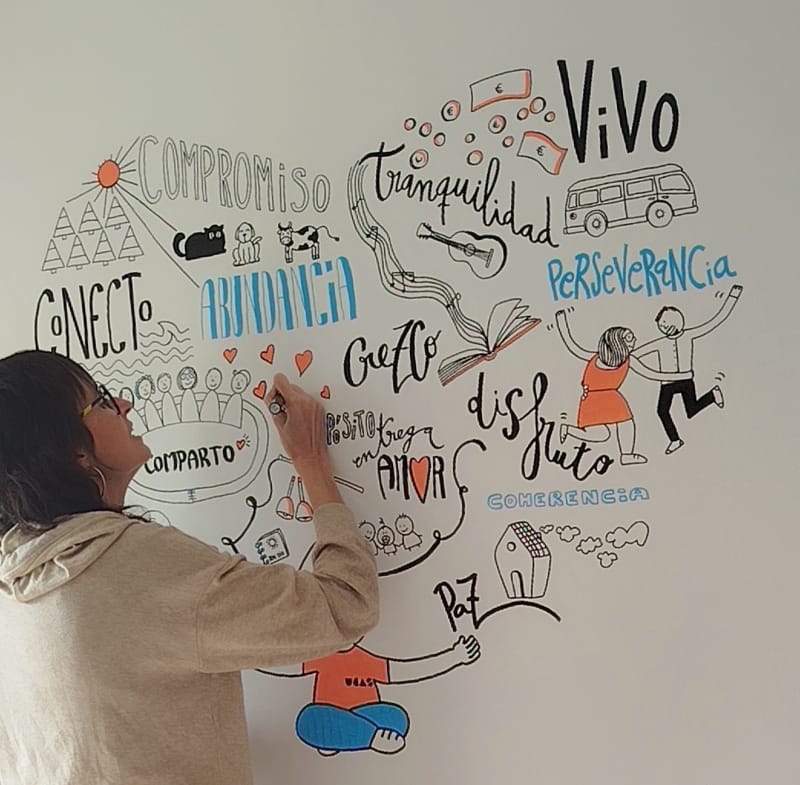 VIVO
COMPROMISO
tranquilidad
€
€
€
€
PERSEVERANCIA
ABUNDANCIA
CONECTO
CREZCO
disfruto
PÓSITO
entrega
AMOR
COMPARTO
COHERENCIA
PAZ